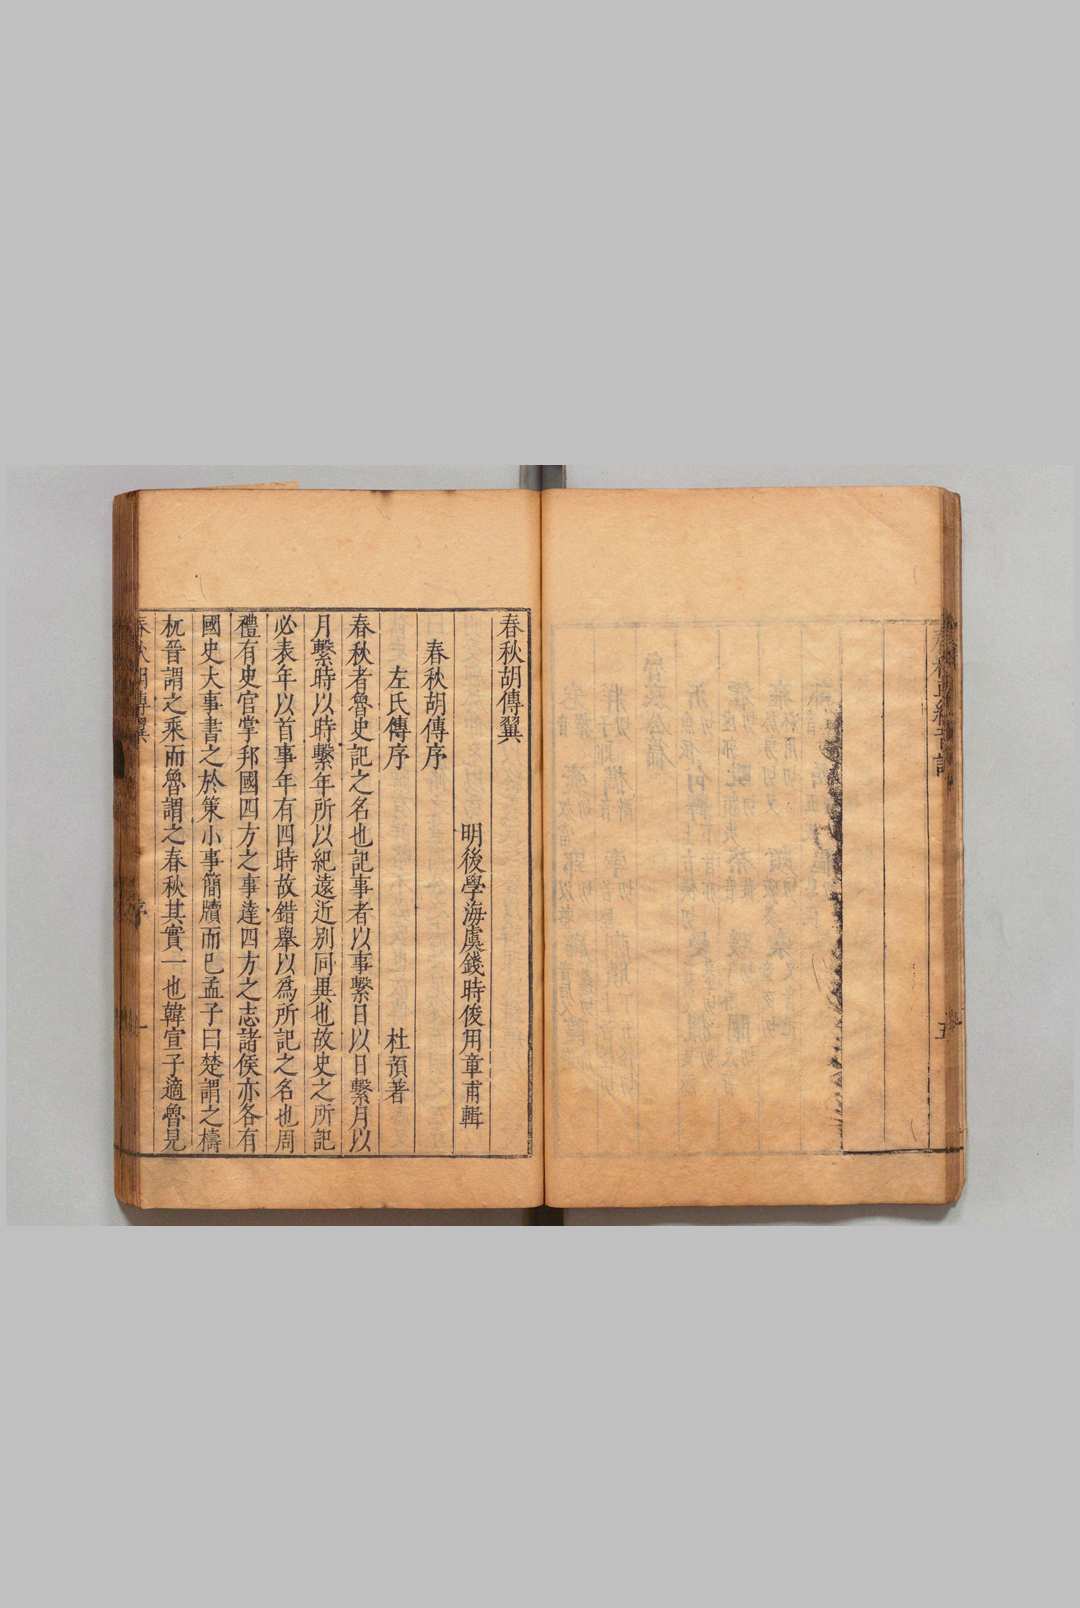 春秋胡傳翼
明後學海虞錢時俊用章甫輯
春秋胡傳序
左氏傳序 杜預著
春秋者魯史記之名也記事者以事繫日以日繫月以
月繫時以時繫年所以紀遠近別同異也故史之所記
必表年以首事年有四時故錯舉以為所記之名也周
禮有史官掌邦國四方之事達四方之志諸侯亦各有
國史大事書之於策小事簡牘而已孟子曰楚謂之檮
杌晉謂之乘而魯謂之春秋其實一也韓宣子適魯見
春秋胡傳翼 序 一